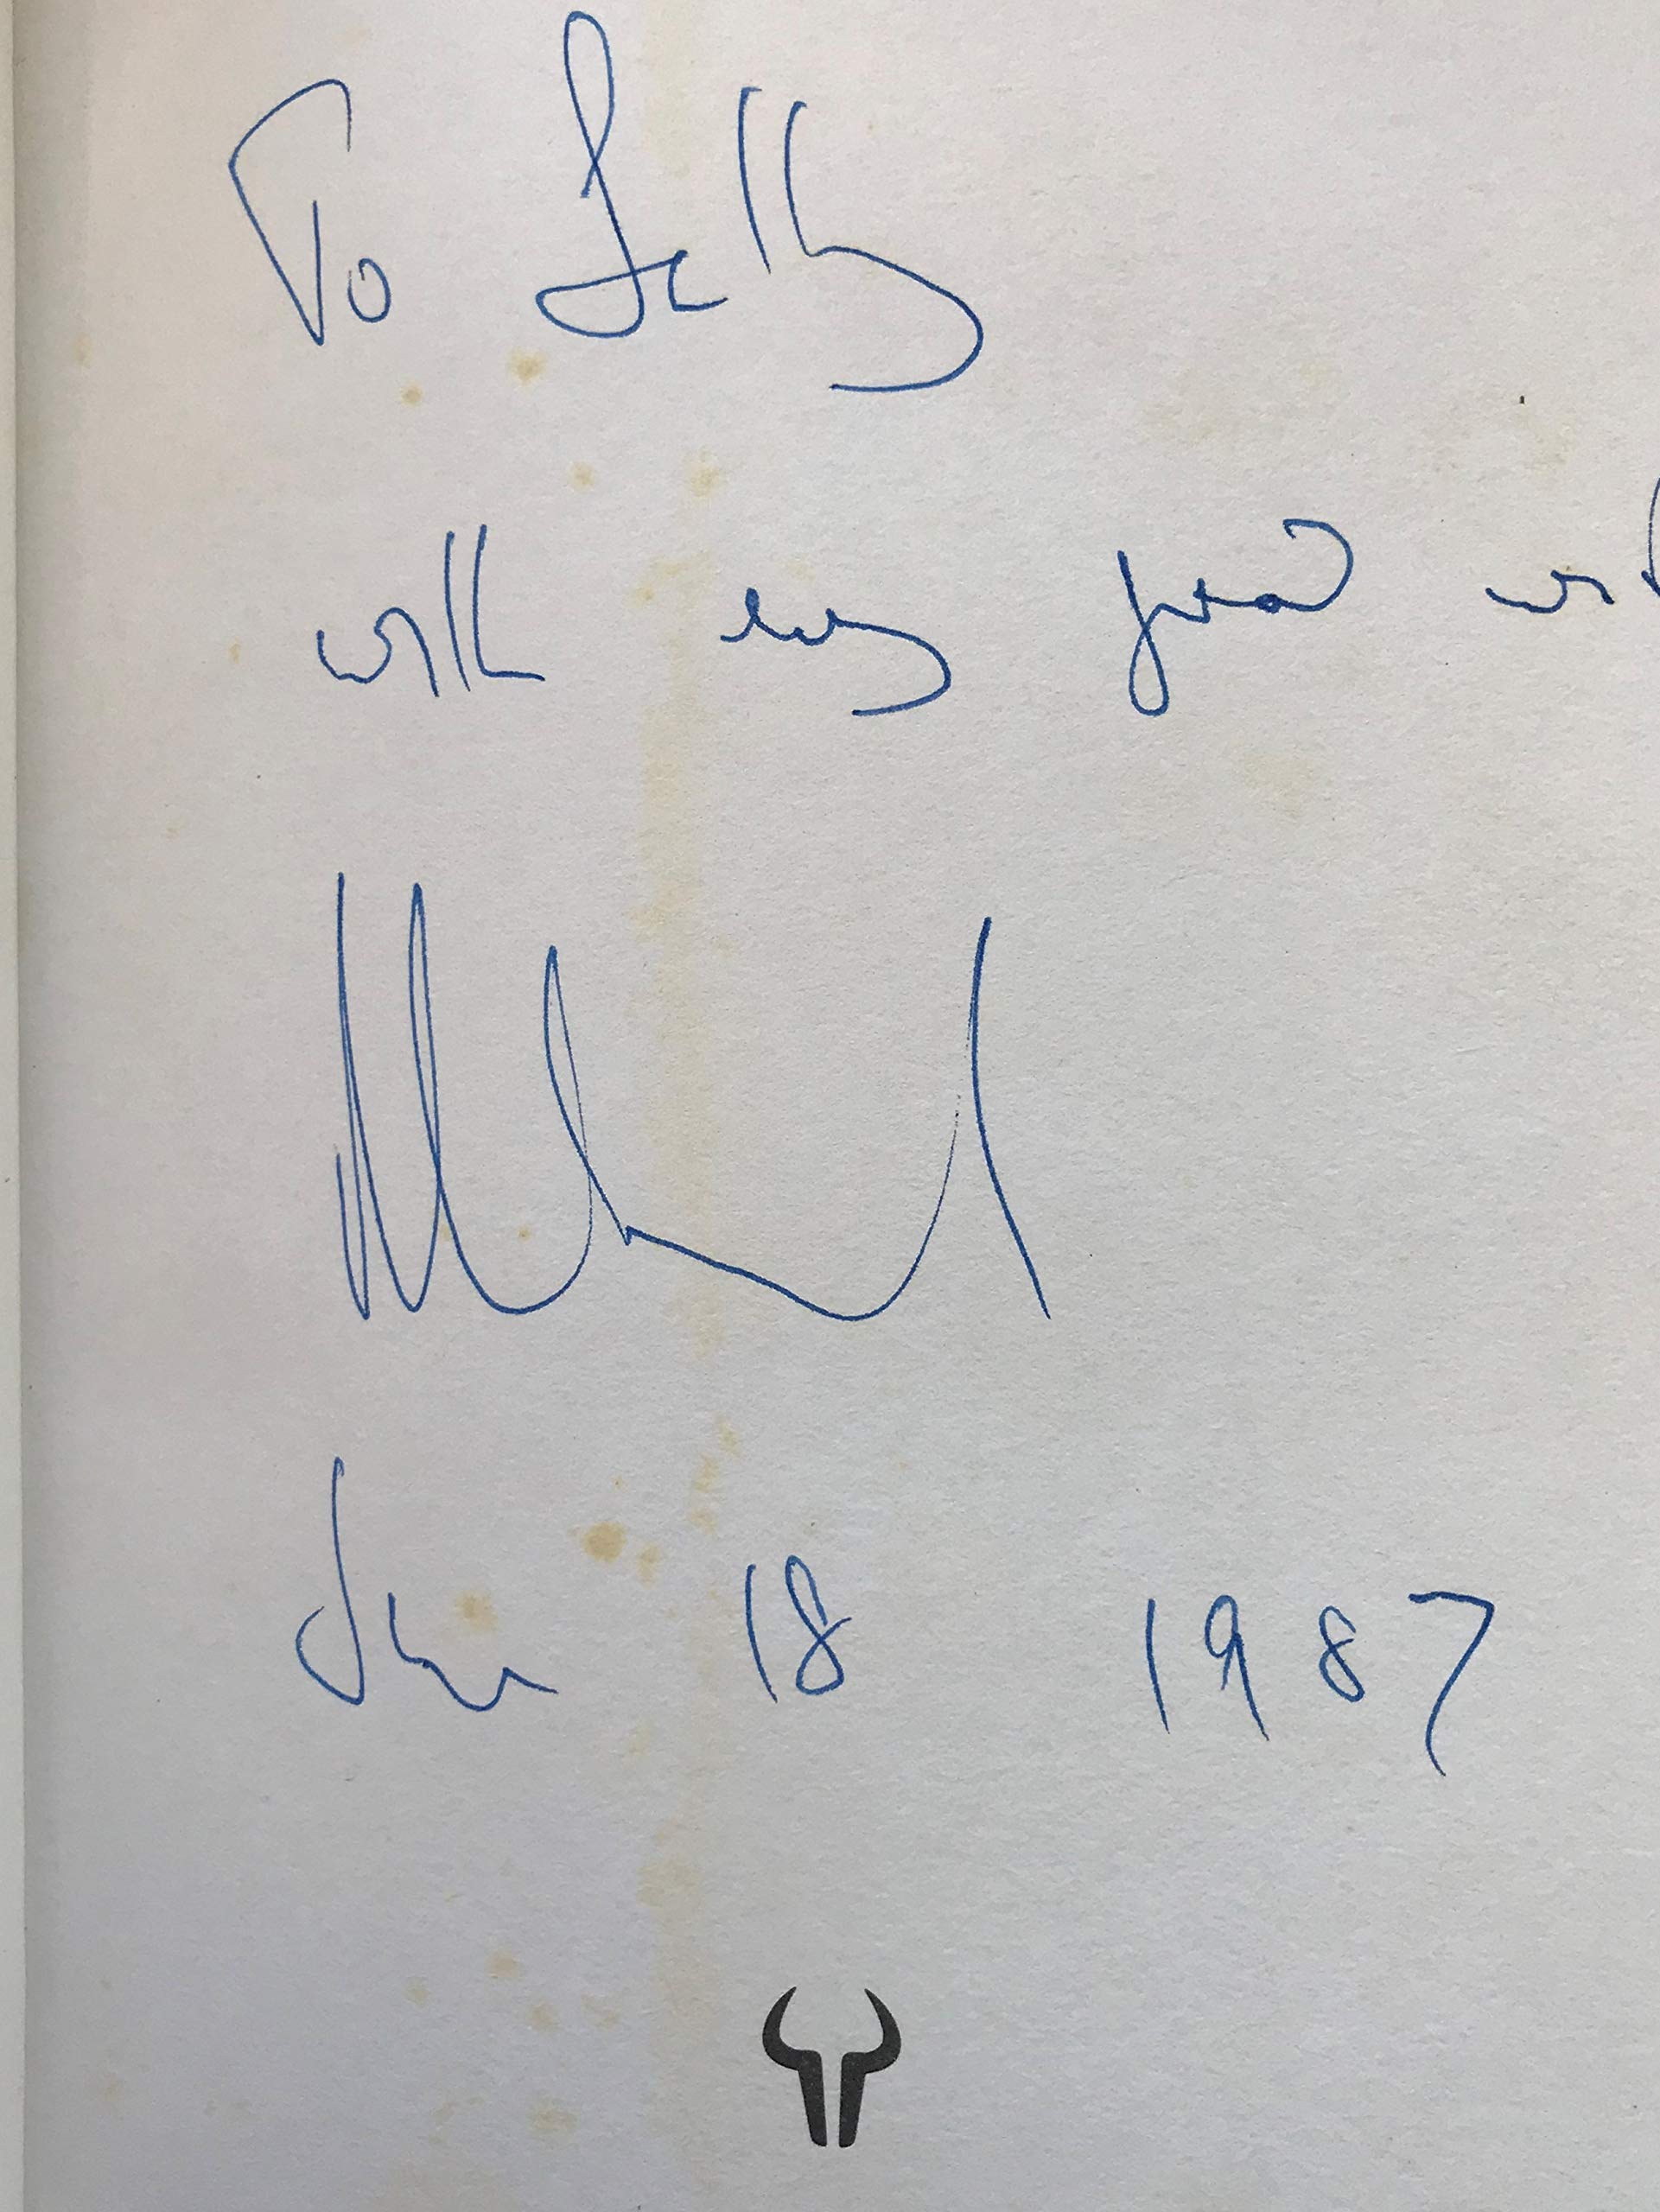 To Sally
with every good wis
June 18 1987